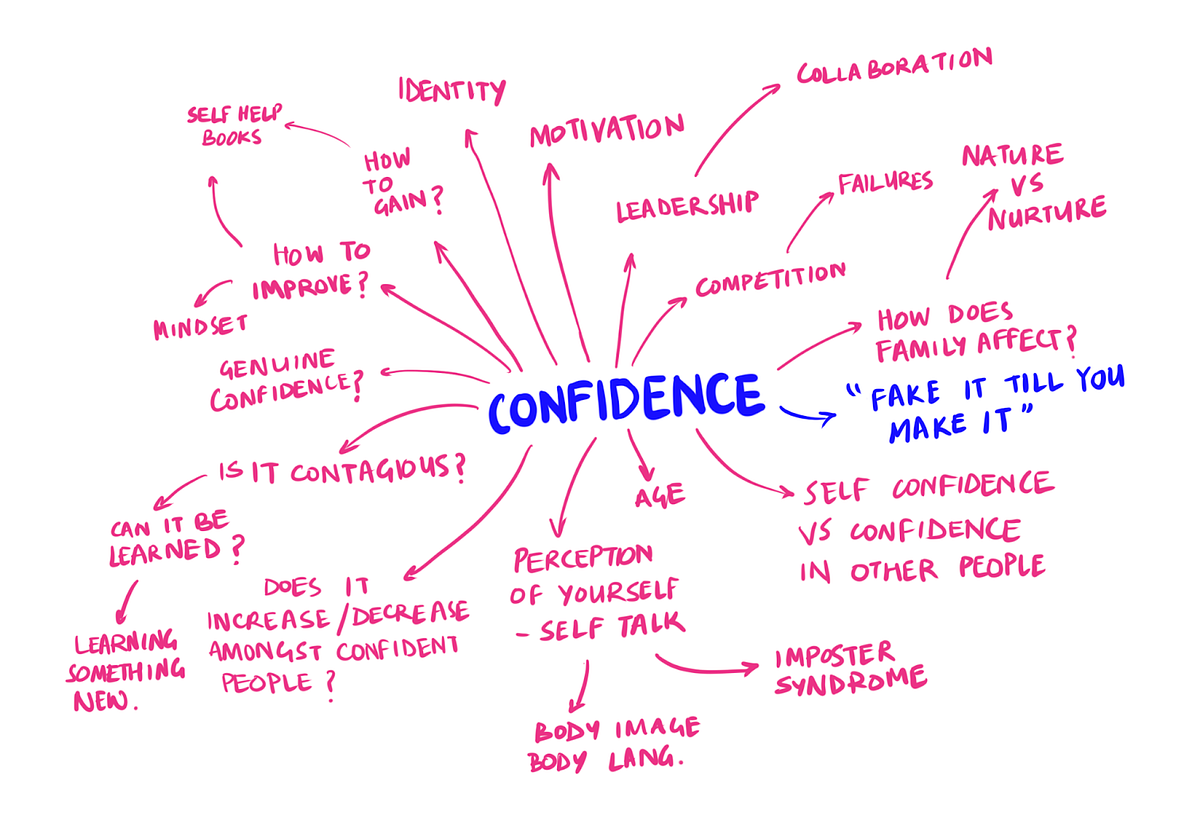 COLLABORATION
IDENTITY
SELF HELP
BOOKS
MOTIVATION
HOW
TO
GAIN?
NATURE
VS
NURTURE
FAILURES
LEADERSHIP
HOW TO
IMPROVE?
COMPETITION
MINDSET
HOW DOES
FAMILY AFFECT?
GENUINE
CONFIDENCE?
CONFIDENCE
"FAKE IT TILL YOU
MAKE IT"
IS IT CONTAGIOUS?
AGE
SELF CONFIDENCE
VS CONFIDENCE
IN OTHER PEOPLE
CAN IT BE
LEARNED?
DOES IT
INCREASE/DECREASE
AMONGST CONFIDENT
PEOPLE?
PERCEPTION
OF YOURSELF
- SELF TALK
LEARNING
SOMETHING
NEW.
IMPOSTER
SYNDROME
BODY IMAGE
BODY LANG.